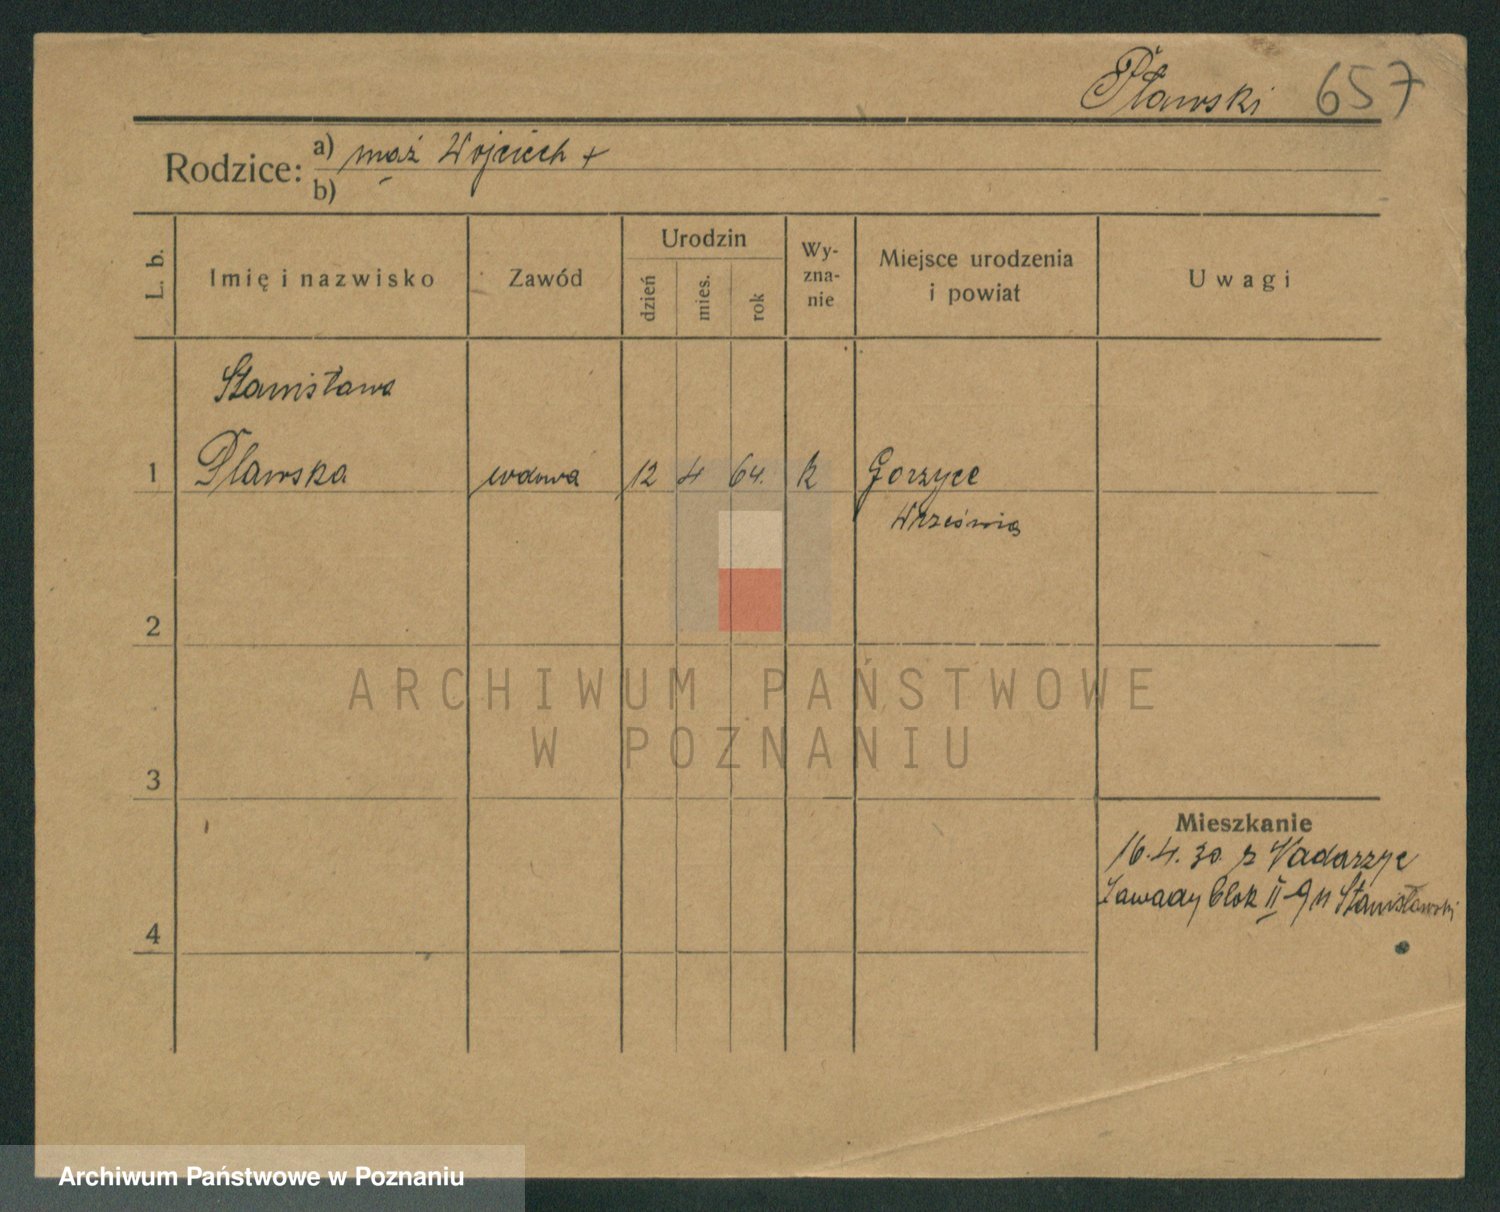 Pławski 657
Rodzice: a) mąż Wojciech +
b)
L. b.
Imię i nazwisko
Zawód
Urodzin
dzień
mies.
rok
Wy-
zna-
nie
Miejsce urodzenia
i powiat
Uwagi
Stanisława
1 Plawska wdowa 12 4 64. k Gorzyce
Września
2
3
4
Mieszkanie
16.4.30. z Nadarzyc
Zawady blok II-9 u Stanisławski
ARCHIWUM PAŃSTWOWE
W POZNANIU
Archiwum Państwowe w Poznaniu